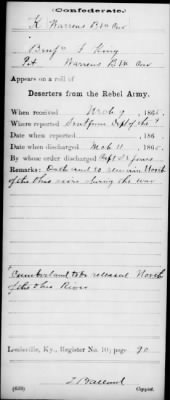 (Confederate.)
K Warrens Btn Cav
Benjn F King
Pvt Warrens Btn Cav
Appears on a roll of
Deserters from the Rebel Army.
When received Mch 9, 1865.
Where reported
Date when reported , 186 .
Date when discharged Mch 11, 1865.
By whose order discharged Capt
Remarks: Oath and to remain North
of the Ohio river during the war
Cumberland to be released North
of the Ohio River
Louisville, Ky., Register No. 10; page 90
Copyist.